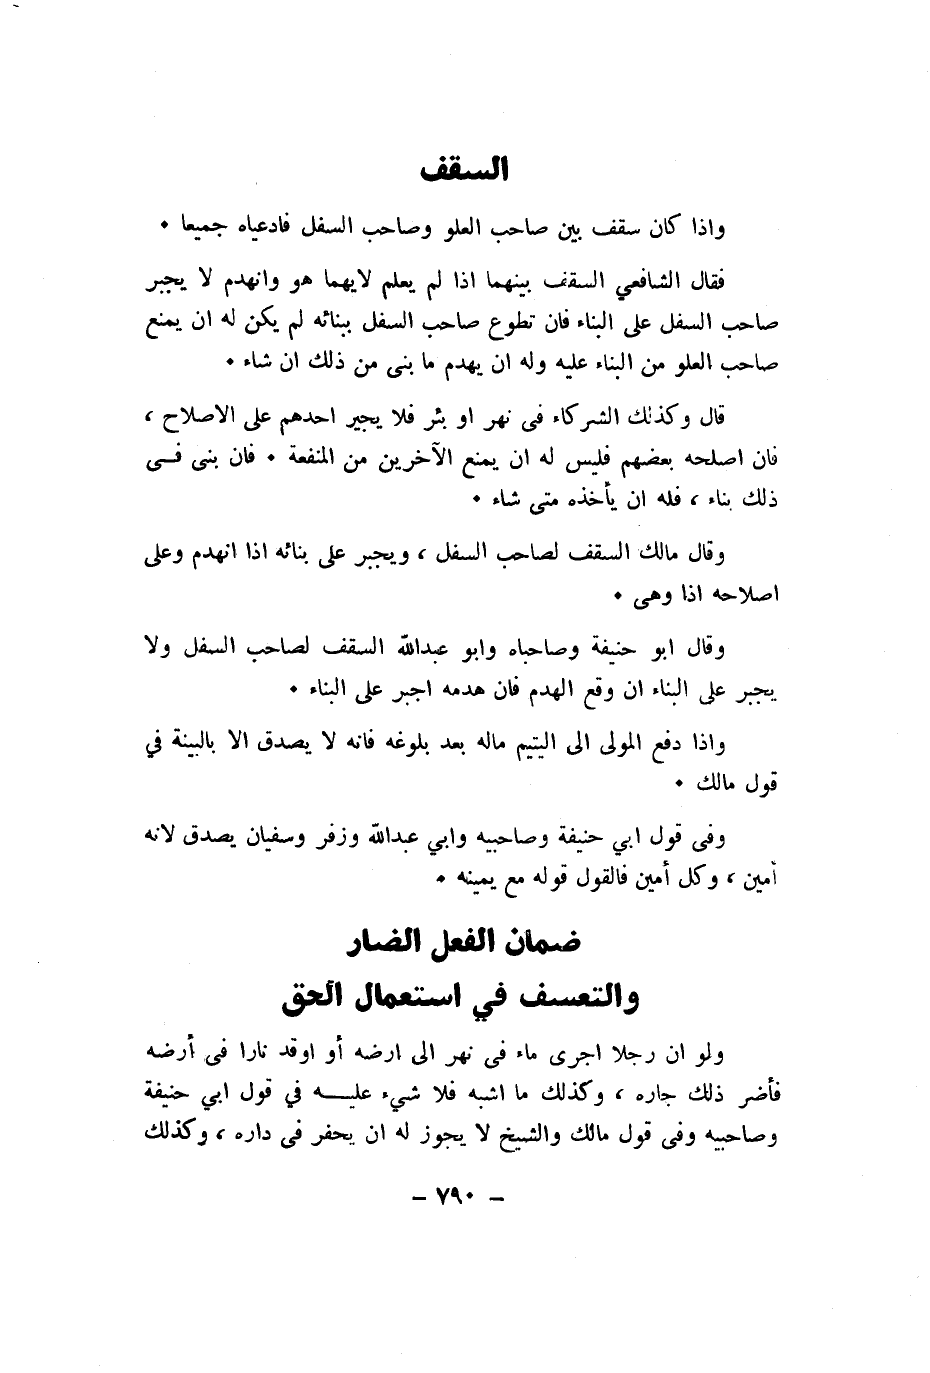 السقف
واذا كان سقف بين صاحب العلو وصاحب السفل فادعياه جميعا •
فقال الشافعي السقف بينهما اذا لم يعلم لايهما هو وانهدم لا يجبر
صاحب السفل على البناء فان تطوع صاحب السفل ببنائه لم يكن له ان يمنع
صاحب العلو من البناء عليه وله ان يهدم ما بنى من ذلك ان شاء •
قال وكذلك الشركاء فى نهر او بئر فلا يجبر احدهم على الاصلاح ،
فان اصلحه بعضهم فليس له ان يمنع الآخرين من المنفعة • فان بنى فــى
ذلك بناء ، فله ان يأخذه متى شاء •
وقال مالك السقف لصاحب السفل ، ويجبر على بنائه اذا انهدم وعلى
اصلاحه اذا وهى •
وقال ابو حنيفة وصاحباه وابو عبدالله السقف لصاحب السفل ولا
يجبر على البناء ان وقع الهدم فان هدمه اجبر على البناء •
واذا دفع المولى الى اليتيم ماله بعد بلوغه فانه لا يصدق الا بالبينة في
قول مالك •
وفى قول ابي حنيفة وصاحبيه وابي عبدالله وزفر وسفيان يصدق لانه
أمين ، وكل أمين فالقول قوله مع يمينه •
ضمان الفعل الضار
والتعسف في استعمال الحق
ولو ان رجلا اجرى ماء فى نهر الى ارضه أو اوقد نارا فى أرضه
فأضر ذلك جاره ، وكذلك ما اشبه فلا شيء عليـــه في قول ابي حنيفة
وصاحبيه وفى قول مالك والشيخ لا يجوز له ان يحفر فى داره ، وكذلك
– ٧٩٠ –